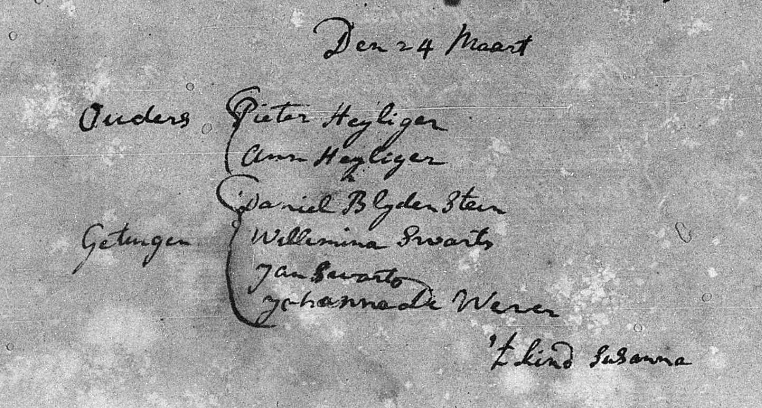 Den 24 Maart
Ouders Pieter Heyliger
Ann Heyliger
Daniel Blydenstein
Getuigen Willemina Swarts
Jan Swarts
Johanna de Wever
't kind Susanna